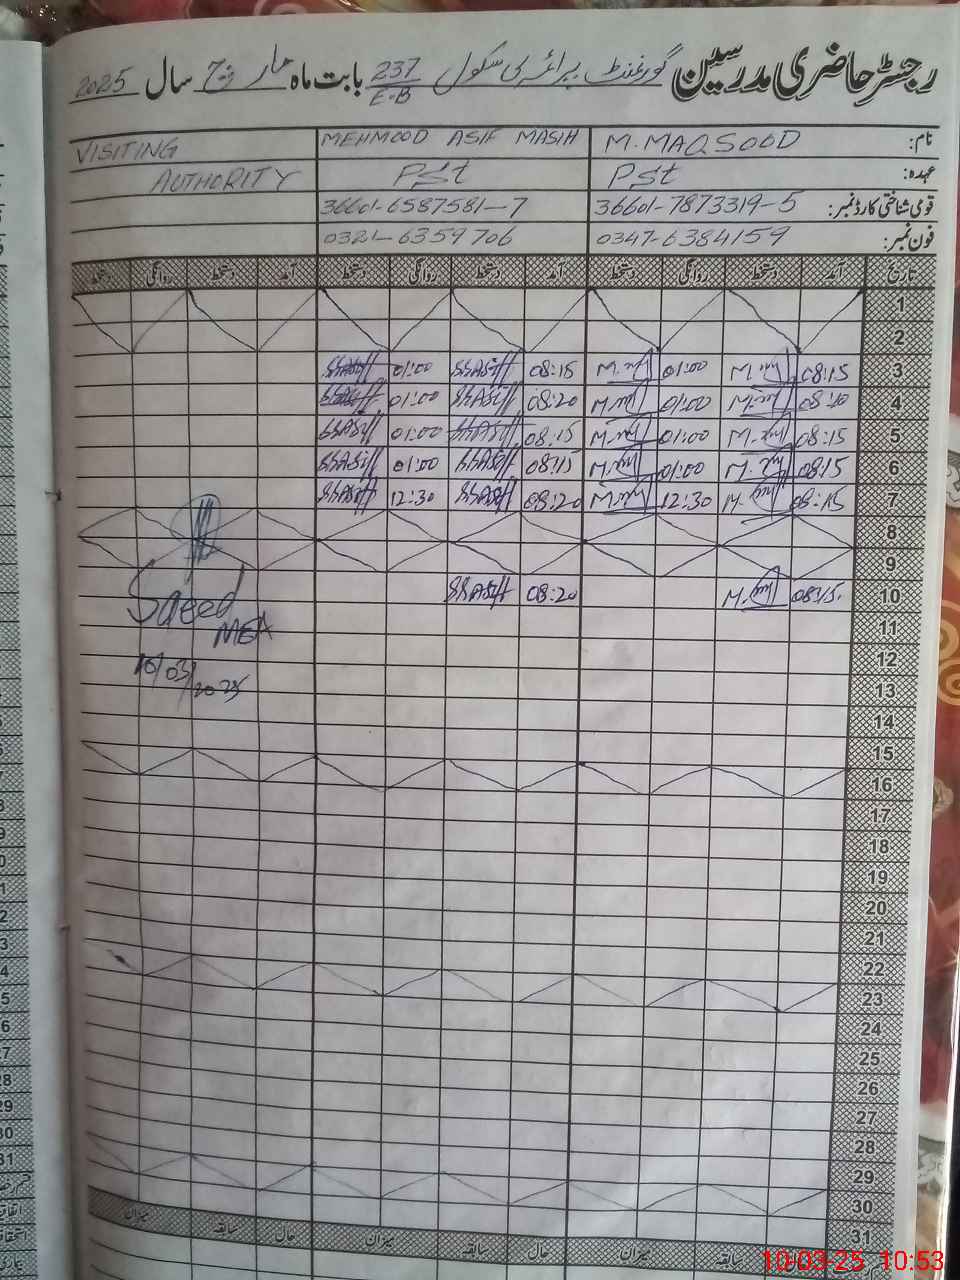 رجسٹر حاضری مدرسین گورنمنٹ پرائمری سکول 237 E-B بابت ماہ مارچ سال 2025
نام: M. MAQSOOD MEHMOOD ASIF MASIH VISITING
عہدہ: PSt PSt AUTHORITY
قومی شناختی کارڈ نمبر: 36601-7873319-5 36601-6587581-7
فون نمبر: 0347-6384159 0321-6359706
تاریخ آمد دستخط روانگی دستخط آمد دستخط روانگی دستخط آمد دستخط روانگی دستخط
1
2
3 08:15 01:00 08:15 01:00
4 08:10 01:00 08:20 01:00
5 08:15 01:00 08:15 01:00
6 08:15 01:00 08:15 01:00
7 08:15 12:30 08:20 12:30
8
9
10 08:15 08:20
Saeed
11
MEA
12
10/03/2025
13
14
15
16
17
18
19
20
21
22
23
24
25
26
27
28
29
30
31
حال سابقہ میزان حال سابقہ میزان حال سابقہ میزان
10-03-25 10:53